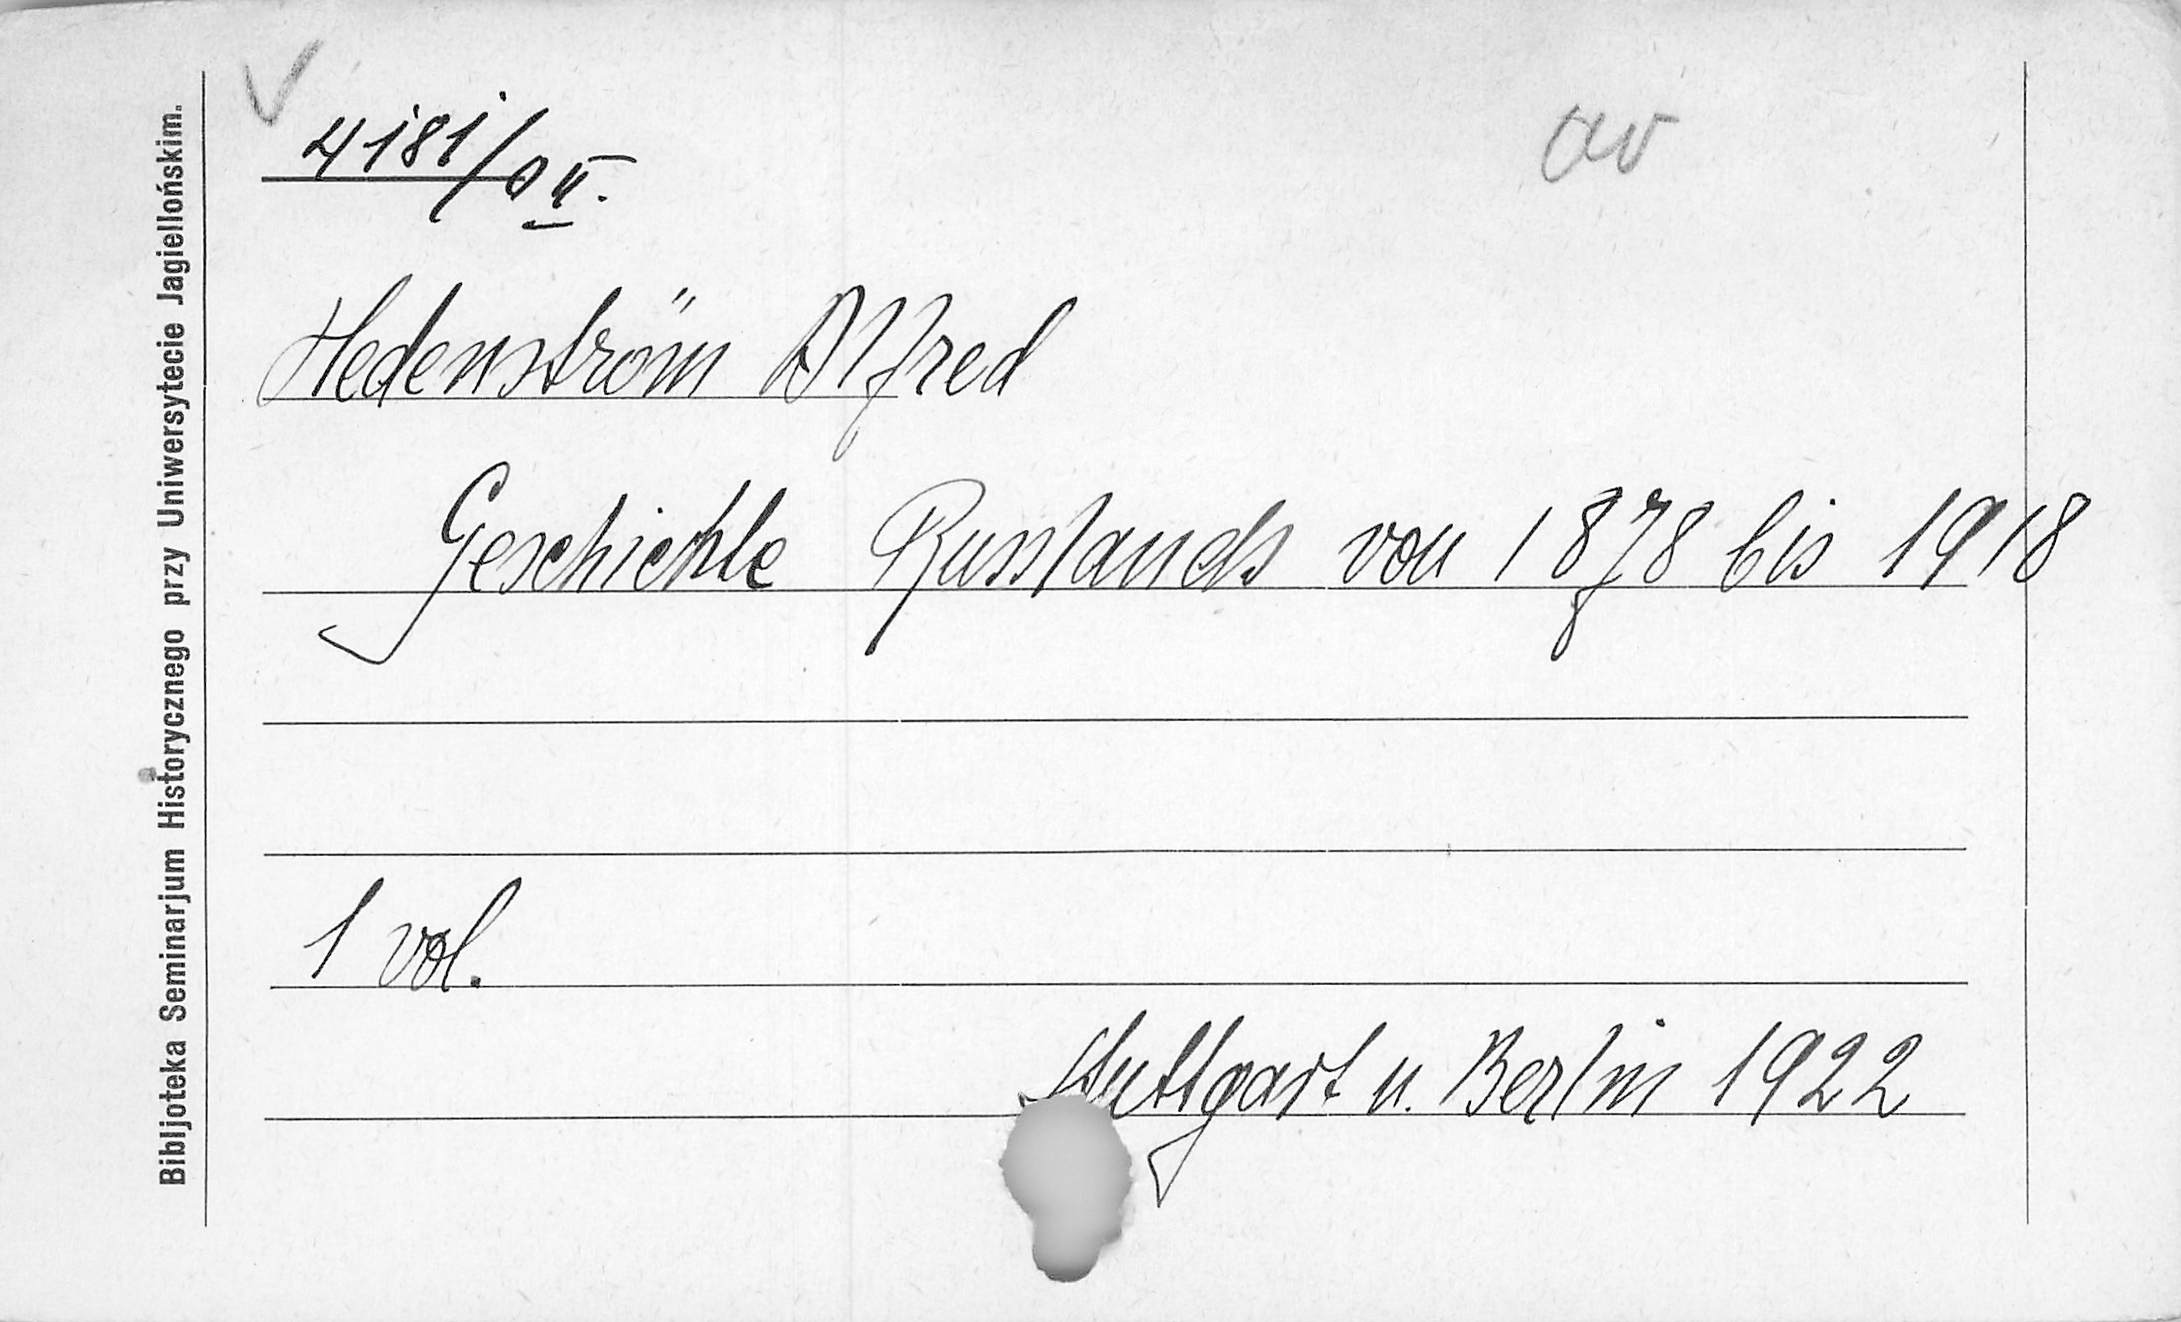 4181/s II.
av
Hedenström Alfred
Geschichte Russlands von 1878 bis 1918
1 vol.
Stuttgart u. Berlin 1922
Bibljoteka Seminarjum Historycznego przy Uniwersytecie Jagiellońskim.